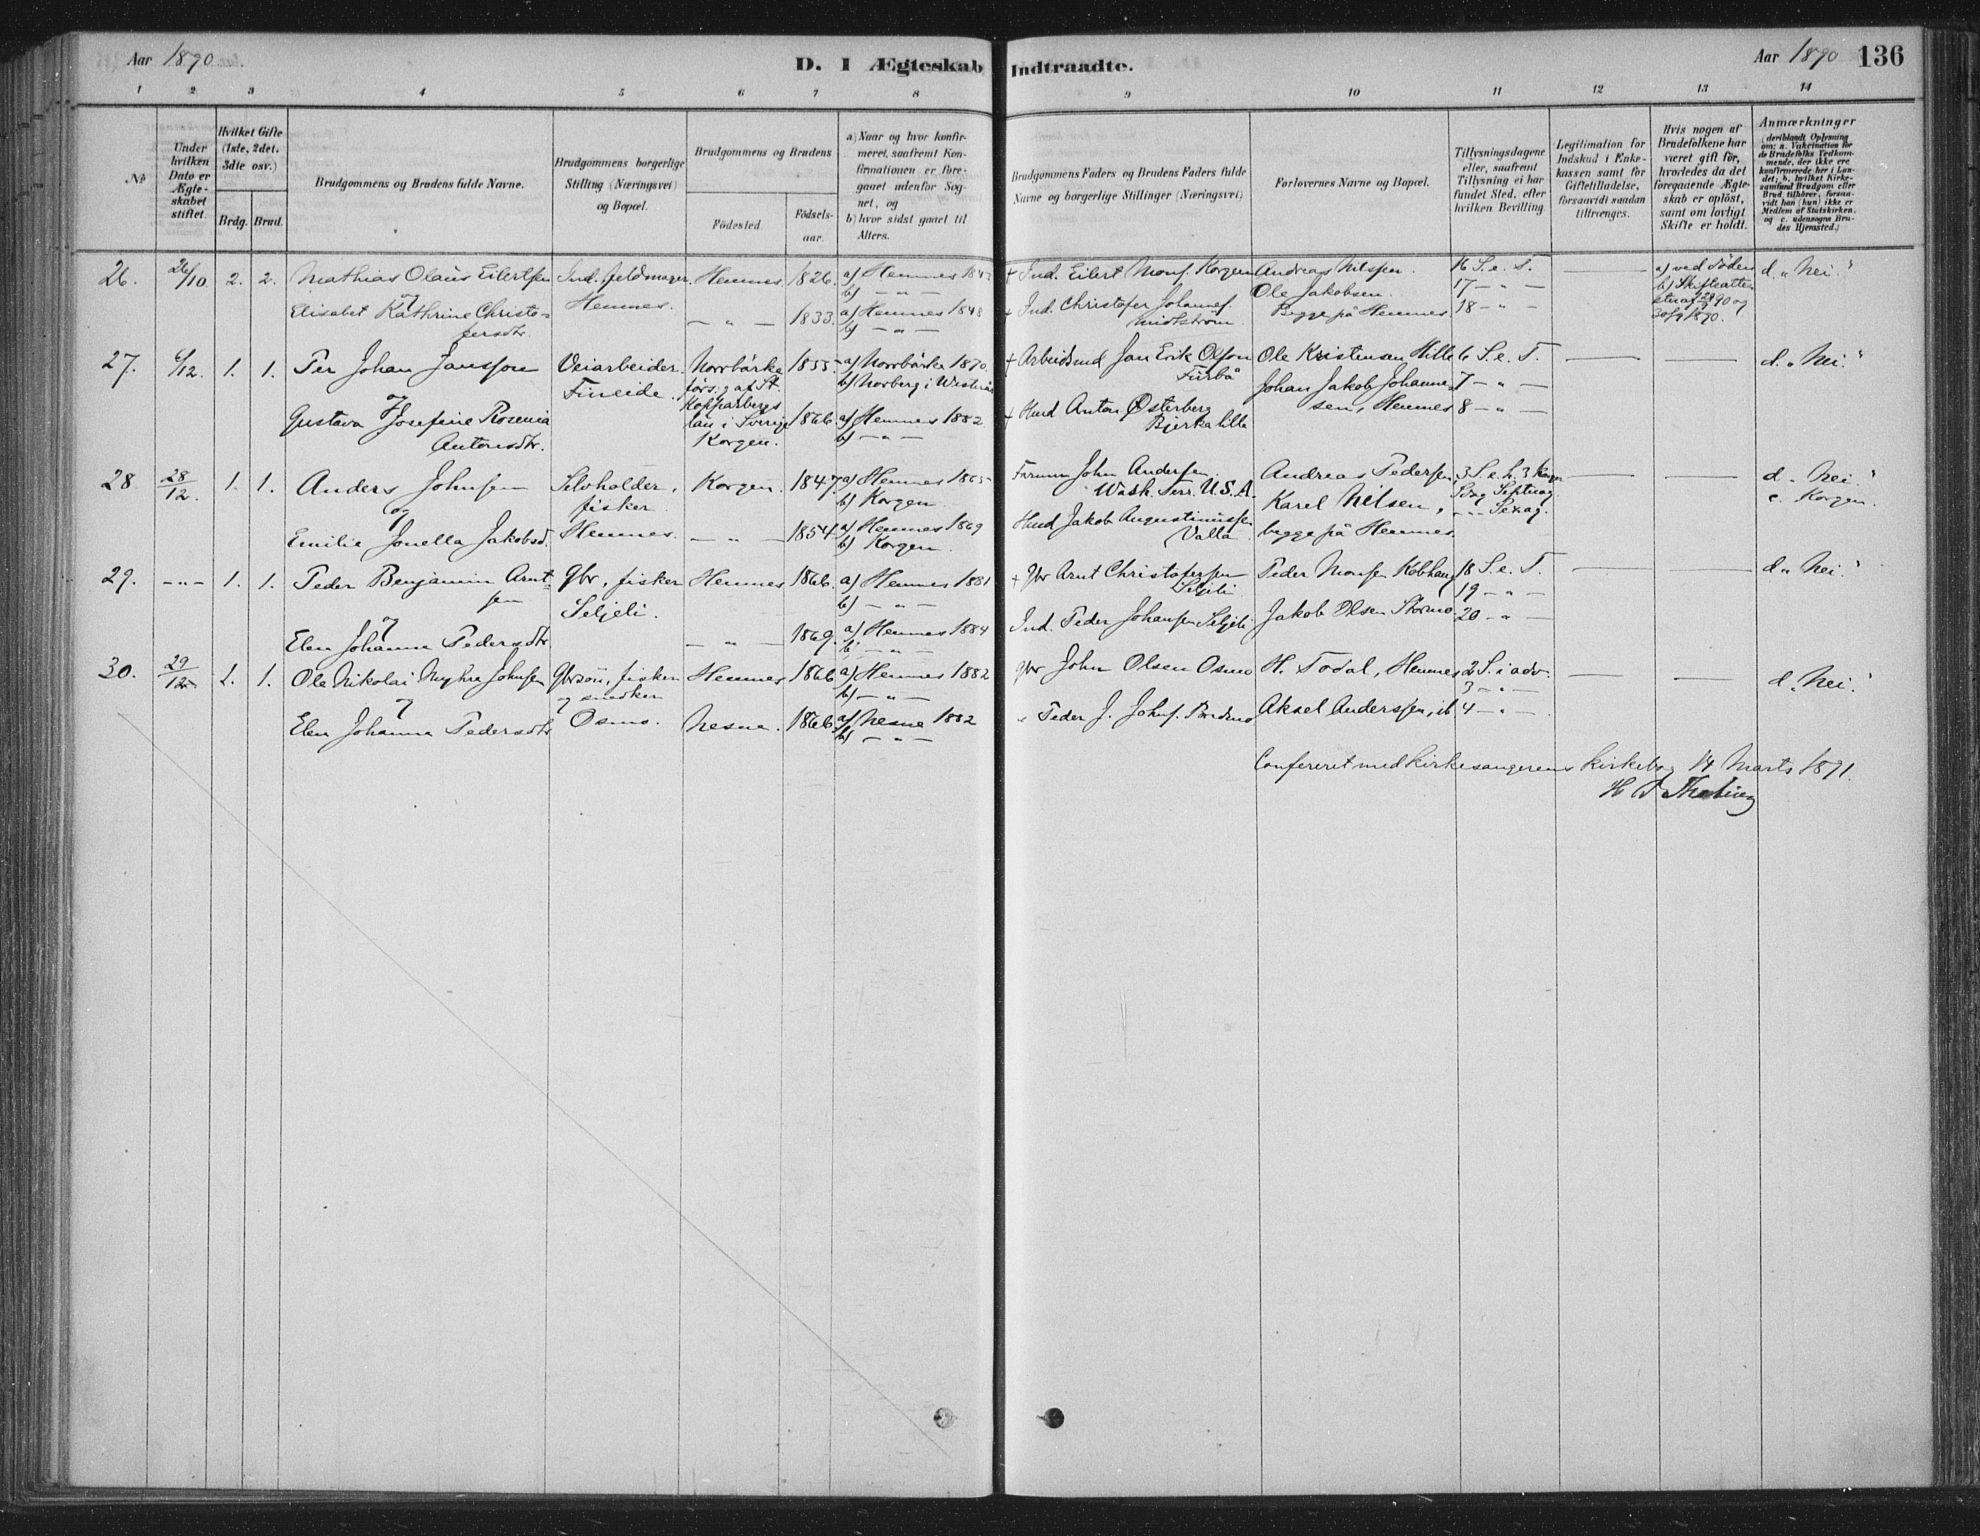 Aar 1890
D. I Ægteskab Indtraadte.
Aar 1890 136
1 2 3 4 5 6 7 8 9 10 11 12 13 14
No
Under hvilken Dato er Ægteskabet stiftet.
Hvilket Gifte (1ste, 2det, 3die osv.)
Brdg. Brud.
Brudgommens og Brudens fulde Navne.
Brudgommens borgerlige Stilling (Næringsvei) og Bopæl.
Brudgommens og Brudens
Födested
Födsels-aar.
a) Naar og hvor konfirmeret, saafremt Konfirmationen er foregaaet udenfor Sognet, og
b) hvor sidst gaaet til Alters.
Brudgommens Faders og Brudens Faders fulde Navne og borgerlige Stillinger (Næringsvei)
Forlovernes Navne og Bopæl.
Tillysningsdagene eller, saafremt Tillysning ei har fundet Sted, efter hvilken Bevilling.
Legitimation for Indskud i Enkekassen samt for Giftetilladelse, forsaavidt saadan tiltrænges.
Hvis nogen af Brudefolkene har været gift för, hvorledes da det foregaaende Ægteskab er oplöst, samt om lovligt Skifte er holdt.
Anmærkninger
26. 26/10. 2. 2. Mathias Olaus Eilertsen Ind. feldmager Hemnes 1826. a) Hemnes
+ Ind. Eilert Mons. Korgen Andreas Nilssen. 16 S. e. T. a) ved døden d. "Nei."
Hemnes. b) — " —
Ole Jakobsen. 17 — " —
Elisabet Kathrine Christofersdtr. — " — 1833. a) Hemnes 1848 b) — " —
+ Ind. Christofer Johannes. Midtstrøm. Begge på Hemnes 18 — " —
27. 6/12. 1. 1. Per Johan Jansson Veiarbeider Norrbärke 1855. a) Norrbärke 1870.
Fineide. förs.g af St. Kopparbergs län i Sverige b) Norberg i
+ Arbeidsmd Jan Erik Olson Ole Kristensen 6 S. e. T. d. "Nei."
Johan Jakob Johannesen, Hemnes 7 — " —
Gustava Josefine Rosenia Antonsdtr. Korgen. 1866. a) Hemnes 1882 b) — " —
+ Husmd Anton Østerberg Bjerkalilla 8 — " —
28. 28/12. 1. 1. Anders Johnsen Selvholder, fisker Korgen. 1847. a) Hemnes 1865 b) Korgen.
og
Farmer John Andersen. Wash. Terr. U.S.A. Andreas Pedersen d. "Nei."
Karel Nilsen, c. Korgen.
Emilie Jonella Jakobsd. Hemnes. — " — 1854. a) Hemnes 1869 b) Korgen.
Husmd Jakob Augustinussen Valla begge på Hemnes
29. — " — 1. 1. Peder Benjamin Arntsen Gbr, fisker Hemnes 1866. a) Hemnes 1881 b) — " —
Seljeli.
+ Gbr Arnt Christofersen Seljeli Peder Monsen Kobhaug 18 S. e. T. d. "Nei."
19 — " —
Elen Johanna Pedersdtr — " — 1869. a) Hemnes 1884 b) — " —
Ind. Peder Johansen Seljeli Jakob Olsen Stormo. 20 — " —
30. 29/12 1. 1. Ole Nikolai Myhre Johnsen Gbrsøn, fisker og snedker Hemnes 1866 a) Hemnes 1882 b) — " —
Gbr John Olsen Osmo H. Todal, Hemnes 2 S. i adv. d. "Nei."
3 — " —
Elen Johanna Pedersdtr Osmo. Nesna. 1866. a) Nesna 1882 b) — " —
" Peder J. Johns. Aksel Anderssen, ib. 4 — " —
Confereret med kirkesangerens kirkebog 14 Marts 1891.